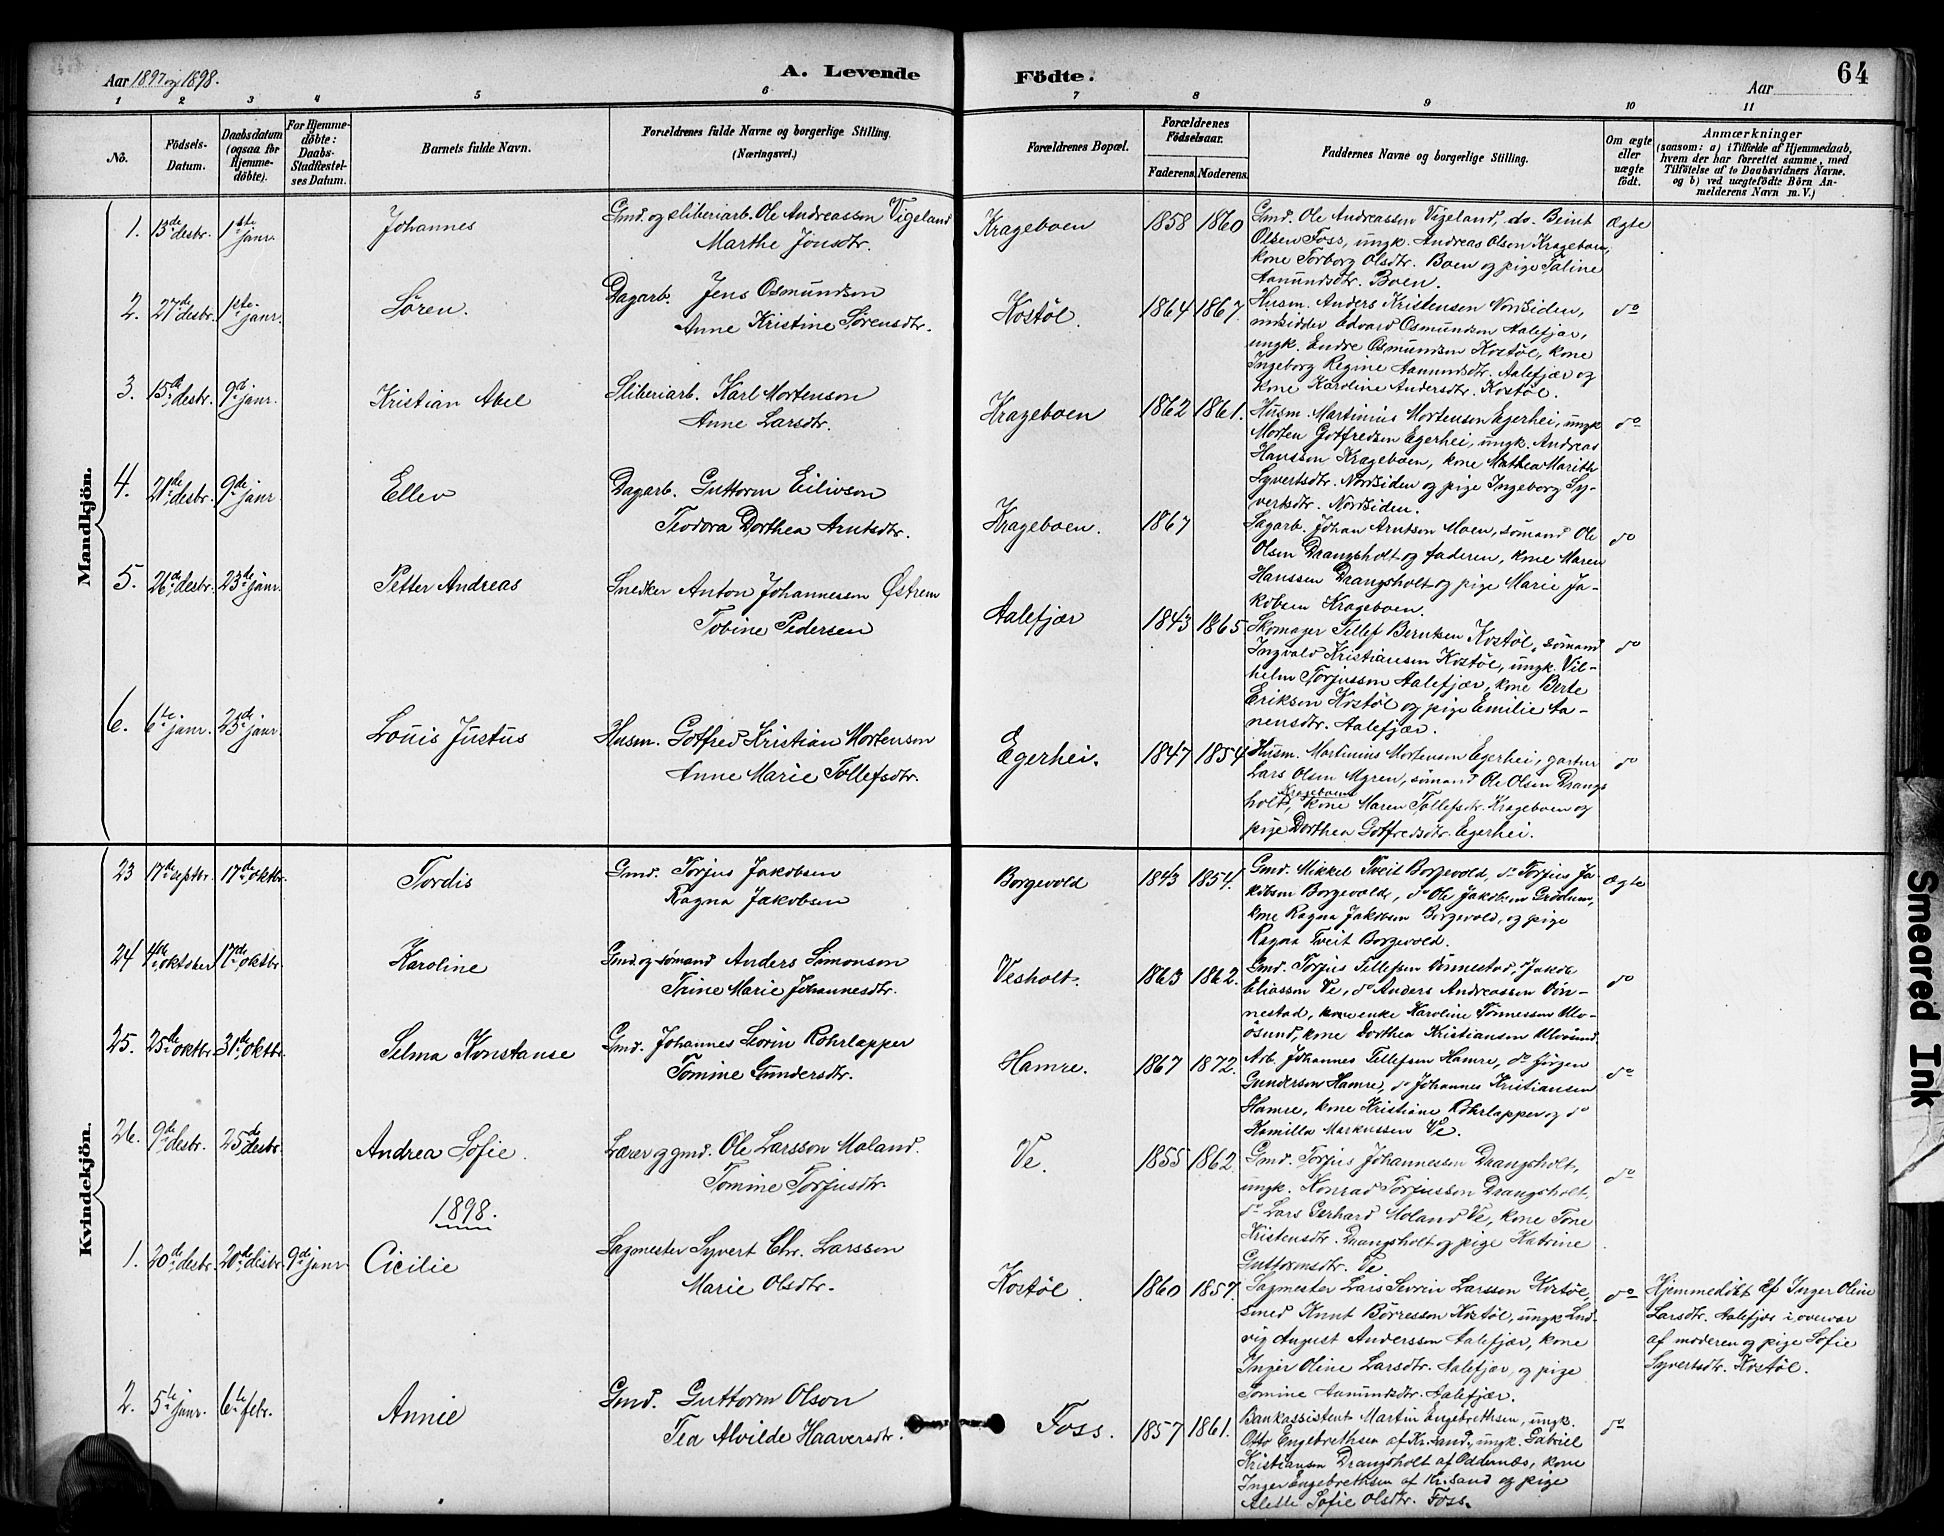 Aar 1897 og 1898.
A. Levende
Födte.
Aar
64
1 2 3 4 5 6 7 8 9 10 11
No.
Födsels-
Datum.
Daabsdatum
(ogsaa for
Hjemme-
döbte).
For Hjemme-
döbte:
Daabs-
Stadfæstel-
ses Datum.
Barnets fulde Navn.
Forældrenes fulde Navne og borgerlige Stilling.
(Næringsvei.)
Forældrenes Bopæl.
Forældrenes
Födselsaar.
Faderens. Moderens.
Faddernes Navne og borgerlige Stilling.
Om ægte
eller
uægte
født.
Anmærkninger
(saasom: a) i Tilfælde af Hjemmedaab,
hvem der har forrettet samme, med
Tilföielse af to Daabsvidners Navne.
og b) ved uægtefödte Börn An-
melderens Navn m. V.)
Mandkjön.
1. 13de desbr. 1ste janr. Johannes
Gmd. og sliberiarb. Ole Andreassen Vigeland
Marthe Jonsdtr.
Krageboen 1858 1860
Gmd. Ole Andreassen Vigeland, do. Bernt
Olsen Foss, ungk. Andreas Olsen Krageboen,
kone Torborg Olsdtr. Boen og pige Taline
Aamundsdtr. Boen.
Ægte
2. 27de desbr. 1ste janr. Søren.
Dagarb. Jens Osmundsen
Anne Kristine Sørensdtr.
Kostøl. 1864 1867.
Husm. Anders Kristensen Nordsiden,
indsidder Edvard Osmundsen Aalefjær,
ungk. Endre Osmundsen Kostøl, kone
Ingeborg Regine Aamundsdtr. Aalefjær og
kone Karoline Andersdtr. Kostøl.
do
3. 15de desbr. 9de janr. Kristian Abel
Sliberiarb. Karl Mortenson
Anne Larsdtr.
Krageboen 1862 1861.
Husm. Martinius Mortensen Egerhei, ungk
Morten Gotfredsen Egerhei, ungk. Andreas
Hanssen Krageboen, kone Mathea Marith
Syvertsdtr. Nordsiden og pige Ingeborg Sy-
vertsdtr. Nordsiden.
do
4. 21de desbr. 9de janr. Ellev
Dagarb. Guttorm Eilivson
Teodora Dorthea Arntsdtr.
Krageboen. 1867
Sagarb. Johan Arntson Moen, sømand Ole
Olsen Drangsholt og faderen, kone Maren
Hanssen Drangsholt og pige Marie Ja-
kobsen Krageboen.
do
5. 26de desbr. 23de janr. Petter Andreas
Snedker Anton Johannessen Østrem
Tobine Pedersen
Aalefjær 1843 1865
Skomager Tellef Berntsen Kostøl, sømand
Ingvald Kristiansen Kostøl, ungk. Vil-
helm Torjusson Aalefjær, kone Berte
Eriksen Kostøl og pige Emilie Aa-
nensdtr. Aalefjær.
do
6. 6te janr. 23de janr. Louis Justus
Husm. Gotfred Kristian Mortenson
Anne Marie Tollefsdtr.
Egerhei. 1847 1854
Husm. Martinius Mortensen Egerhei,
Lars Olsen Myren, sømand Ole Olsen Drangs
holt, kone Maren Tollefsdtr. Krageboen og
pige Dorthea Gotfredsdtr. Egerhei.
do
Kvindekjön.
23 17de septbr. 17de oktbr. Tordis
Gmd. Torjus Jakobsen
Ragna Jakobsen
Borgevold 1843 1854.
Gmd. Mikkel Tveit Borgevold, do Torjus Ja-
kobsen Borgevold, do Ole Jakobsen Grødum,
kone Ragna Jakobsen Borgevold, og pige
Ragna Tveit Borgevold.
ægte
24 4de oktober 17de oktbr. Karoline
Gmd. og sømand Anders Simonson
Trine Marie Johannesdtr.
Vesholt. 1863 1862.
Gmd. Torjus Tellefsen Vønnestad, Jakob
Eliassen Ve, do Anders Andreassen Vøn-
nestad, kone enke Karoline Tønnessen Ulv-
øsund, kone Dorthea Kristiansen Ulvøsund
do
25. 25de oktbr. 31de oktbr. Selma Konstanse
Gmd. Johannes Severin Rohrlapper
Tomine Gundersdtr.
Hamre. 1867 1872.
Arb. Johannes Tellefsen Hamre, do Jörgen
Gunderson Hamre, do Johannes Kristiansen
Hamre, kone Kristiane Rohrlapper og do
Kamilla Markussen Ve.
do
26. 9de desbr. 25de desbr. Andrea Sofie.
Lærer og gmd. Ole Larsson Moland.
Tomine Torjusdtr.
Ve. 1855 1862.
Gmd. Torjus Johannessen Drangsholt,
ungk. Konrad Torjusson Drangsholt,
do Lars Gerhard Moland Ve, kone Tone
Kristensdtr. Drangsholt og pige Katrine
Guttormsdtr. Ve
do
1898.
1. 20de desbr. 20de desbr. 9de janr Cicilie
Sagmester Syvert Chr. Larsson
Marie Olsdtr.
Kostøl. 1860 1857.
Sagmester Lars Severin Larsson Kostøl,
smed Knut Børresson Kostøl, ungk Lud-
vig August Anderssen Aalefjær, kone
Inger Oline Larsdtr. Aalefjær, og pige
Tomine Aamundsdtr. Aalefjær.
do
Hjemmedöbt af Inger Oline
Larsdtr. Aalefjær i overvær
af moderen og pige Sofie
Syvertsdtr. Kostøl.
2. 5te janr. 6te febr. Annie
Gmd. Guttorm Olson
Tea Alvilde Haaversdtr.
Foss. 1857 1861.
Bankassistent Martin Engebrethsen, ungk.
Otto Engebrethsen af Kr.sand, ungk. Gabriel
Kristiansen Drangsholt af Oddernæs, kone
Inger Engebrethsen af Kr.sand og pige
Alette Sofie Olsdtr. Foss.
do
Smeared Ink